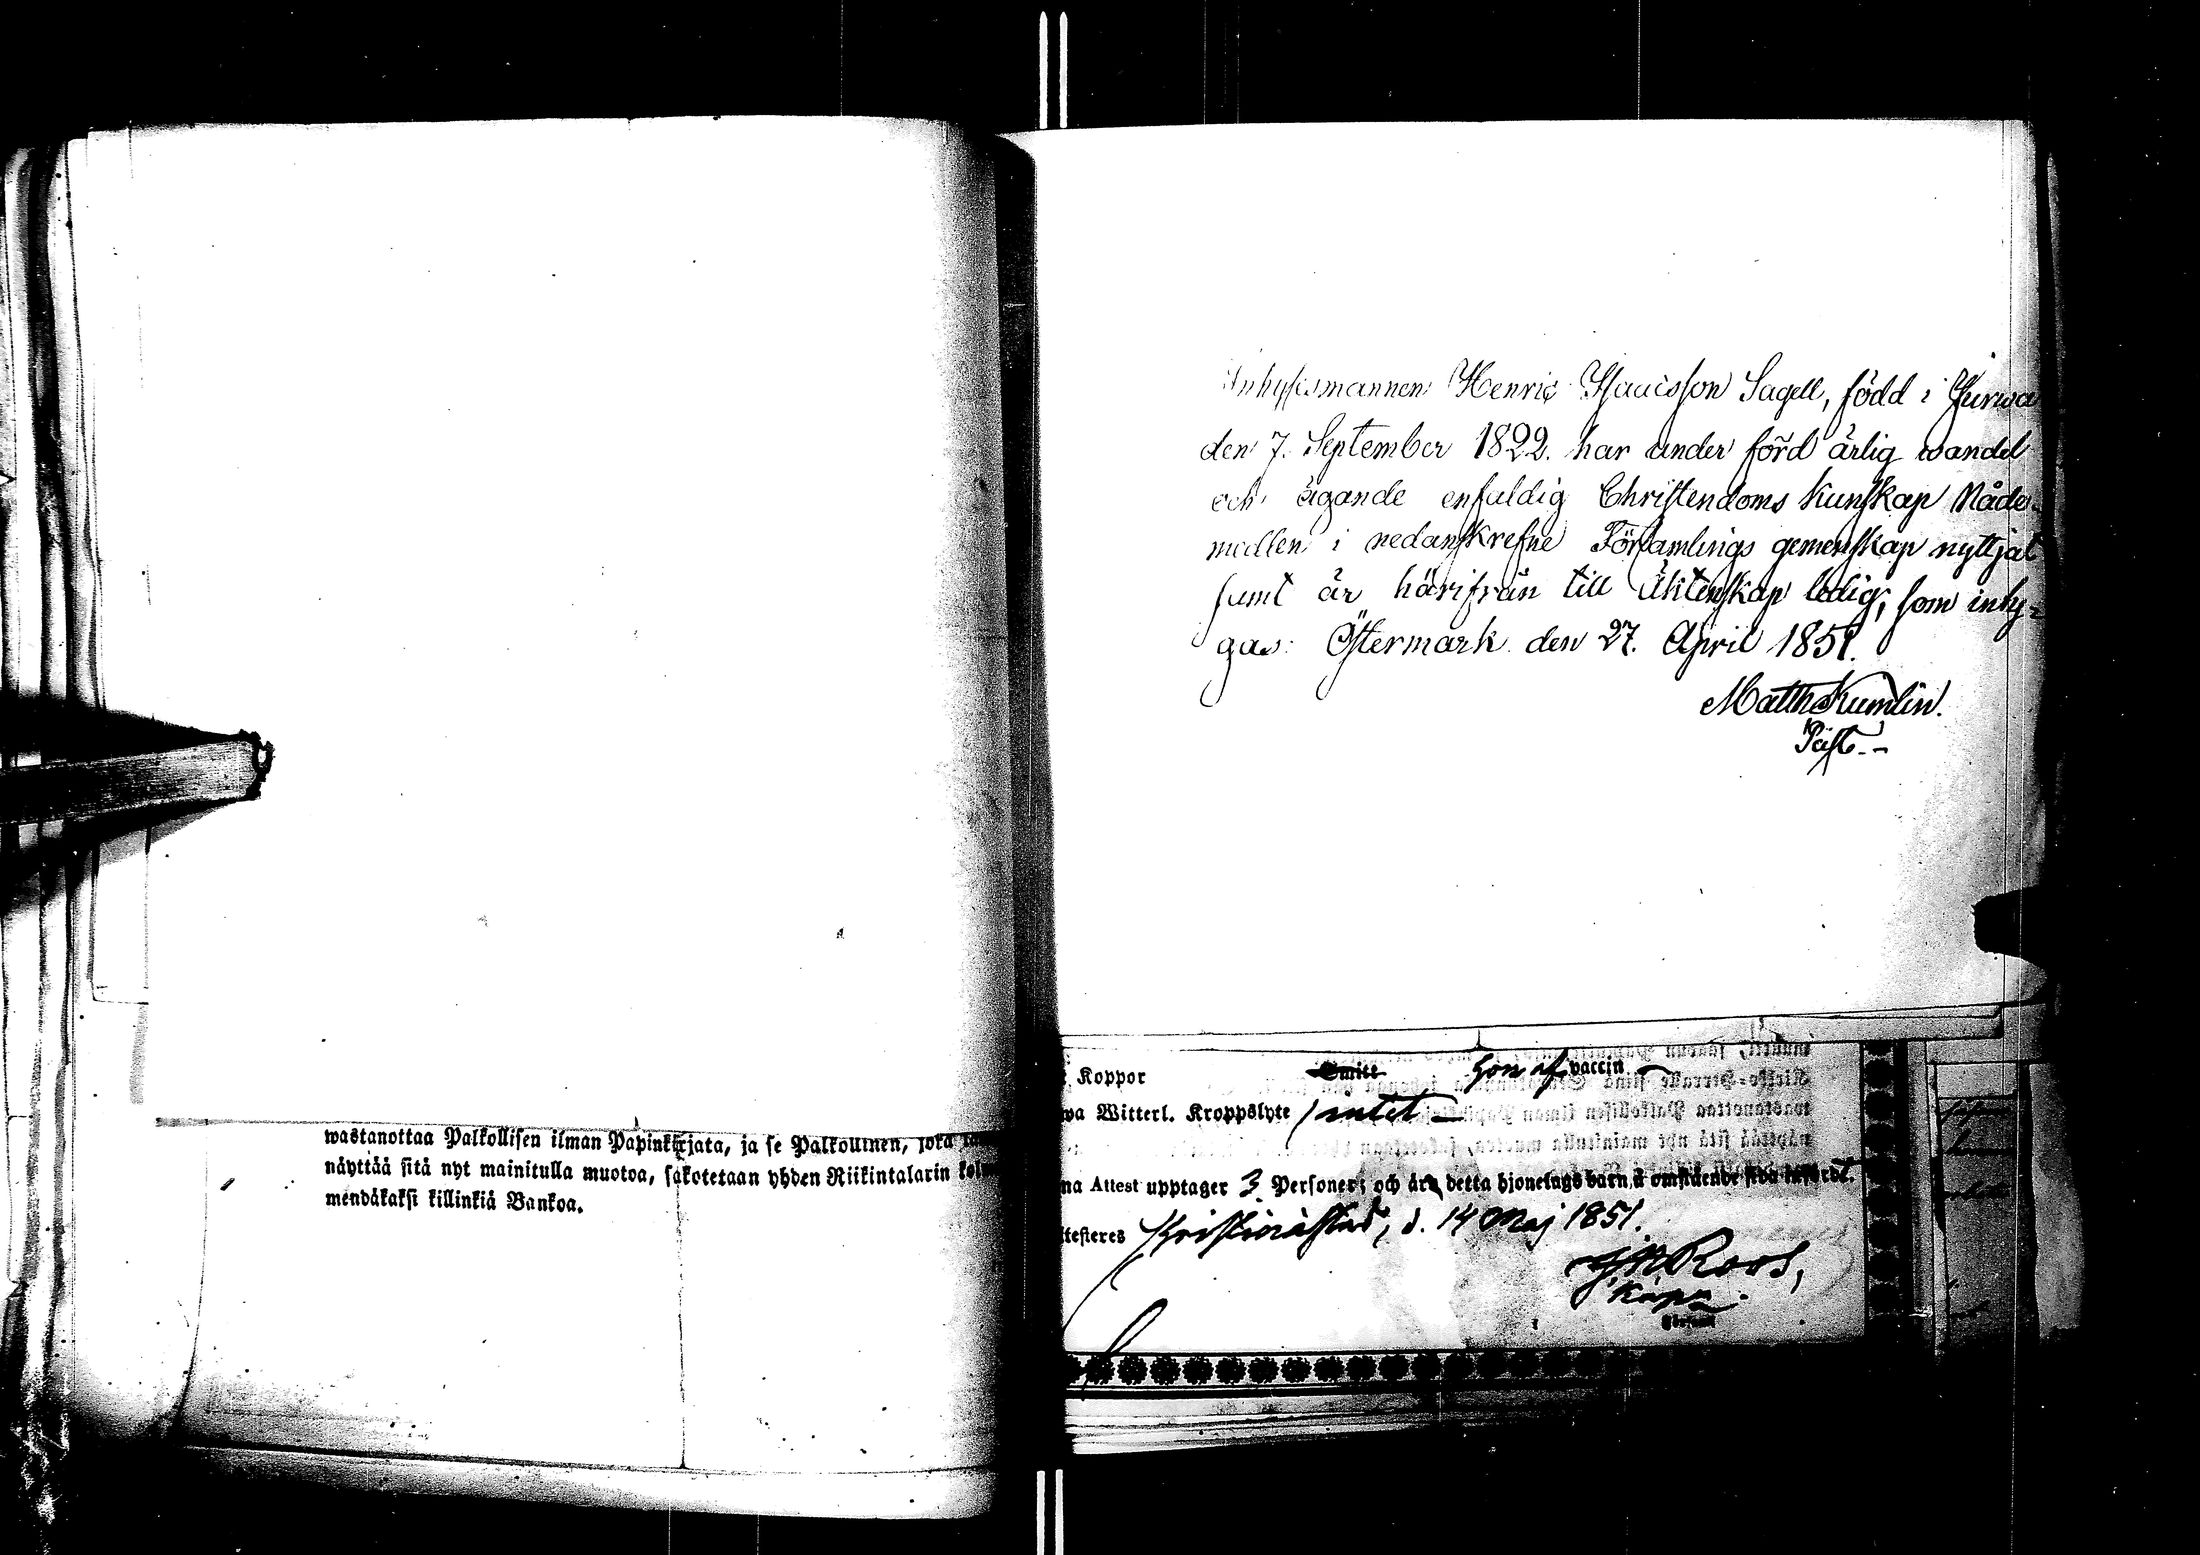 wastanottaa Palkollisen ilman Papinkirjata, ja se Palkollinen, joka
näyttää sitä nyt mainitulla muotoa, sakotetaan yhden Riikintalarin
mendäkaksi killinkiä Bankoa.
Inhyssesmannen Henric Isaacsson Sagell, född i Jurwa
den 7. September 1822. har under förd ärlig wandel
och ägande enfaldig Christendoms kunskap Nåde-
medlen i nedanskrefne Församlings gemenskap nyttjat
samt är härifrån till Äktenskap ledig, som inty-
gas: Östermark den 27. April 1851.
Matth Kumlin.
Past.-
Koppor Smitt hon af vaccin
wa Witterl. Kroppslyte intet
na Attest upptager 3 Personer; och är detta hjonelags barn å omstående sida infördt.
testeres Christinæstad, d. 14 Maj 1851.
Roos,
Kapn.